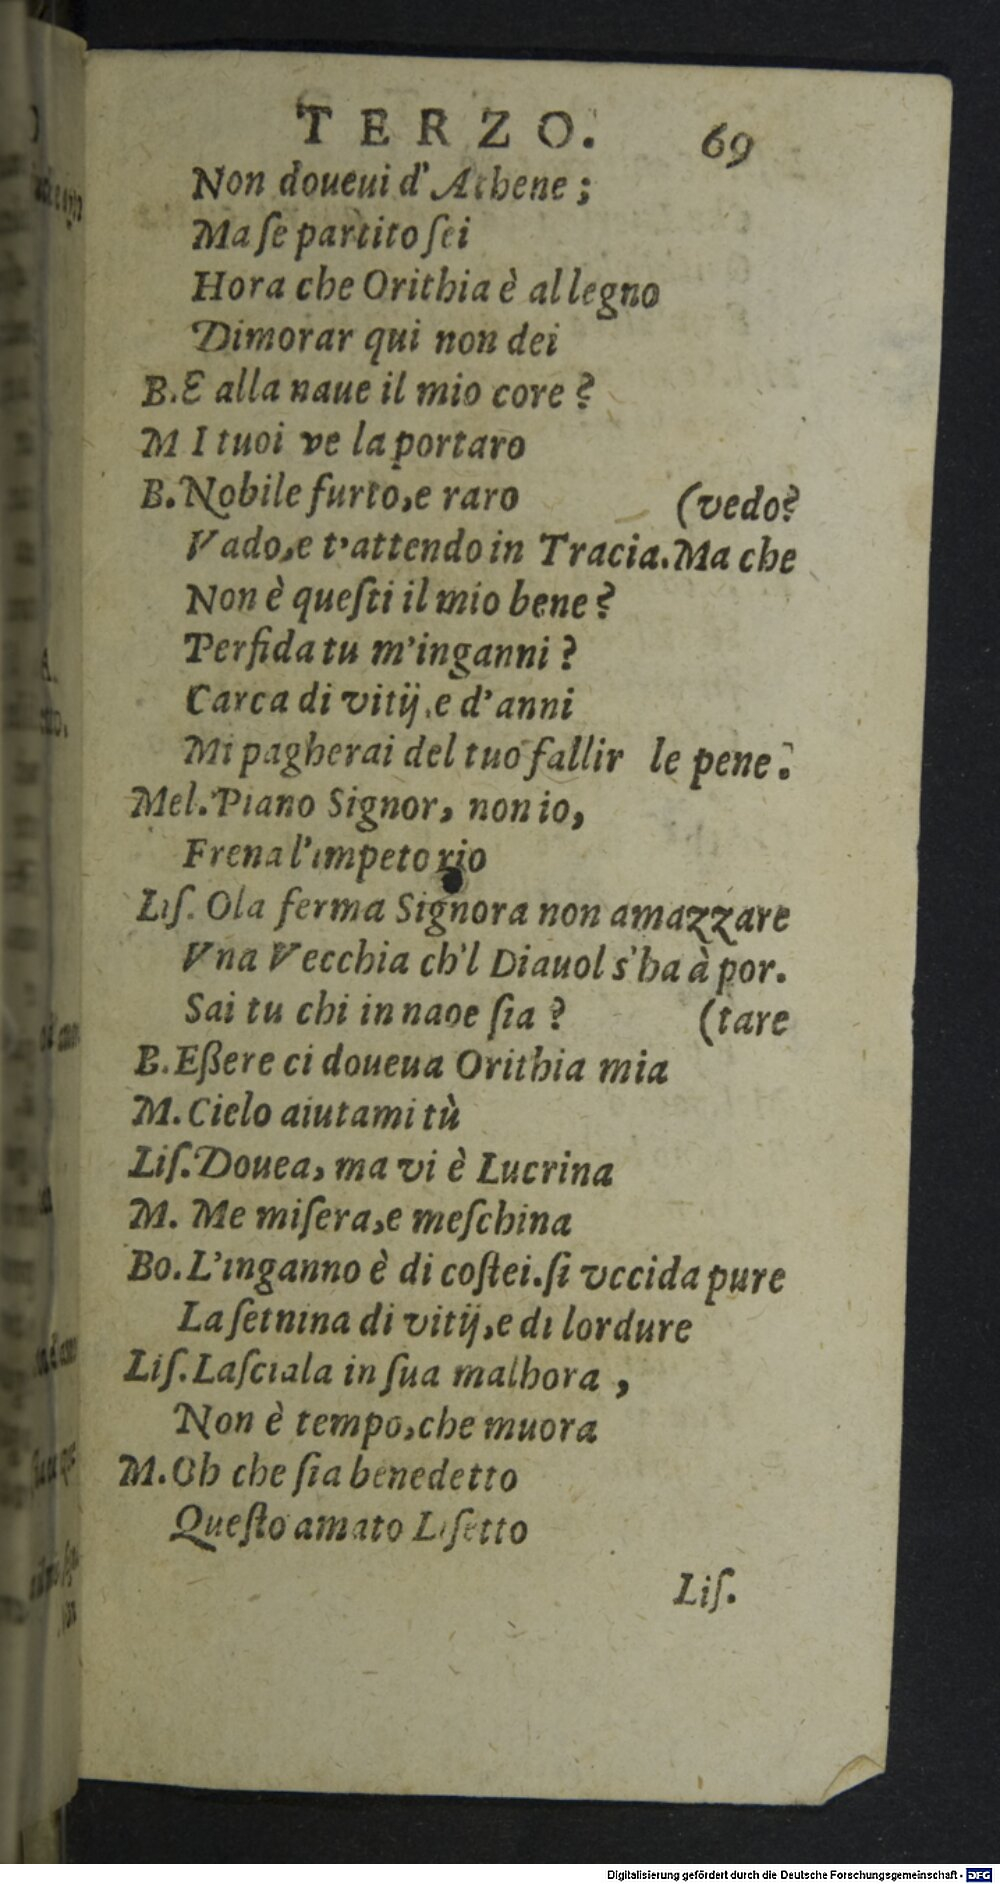 TERZO. 69
Non doueui d'Athene ;
Ma ſe partito ſei
Hora che Orithia è al legno
Dimorar qui non dei
B. E alla naue il mio core ?
M I tuoi ve la portaro
B. Nobile furto, e raro (vedo?
Vado, e t'attendo in Tracia. Ma che
Non è queſti il mio bene ?
Perfida tu m'inganni ?
Carca di vitij, e d'anni
Mi pagherai del tuo fallir le pene.
Mel. Piano Signor, non io,
Frena l'impeto rio
Liſ. Ola ferma Signora non amazzare
Vna Vecchia ch'l Diauol s'ha à por.
Sai tu chi in naoe ſia ? (tare
B. Eßere ci doueua Orithia mia
M. Cielo aiutami tù
Liſ. Douea, ma vi è Lucrina
M. Me miſera, e meſchina
Bo. L'inganno è di coſtei. ſi vccida pure
La ſetnina di vitij, e di lordure
Liſ. Laſciala in ſua malhora ,
Non è tempo, che muora
M. Oh che ſia benedetto
Queſto amato Liſetto
Liſ.
Digitalisierung gefördert durch die Deutsche Forschungsgemeinschaft - DFG